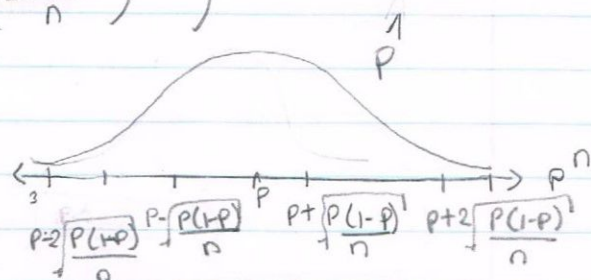 n ) )
p̂
p̂
3 p-2√(p(1-p)/n) p-√(p(1-p)/n) p p+√(p(1-p)/n) p+2√(p(1-p)/n)